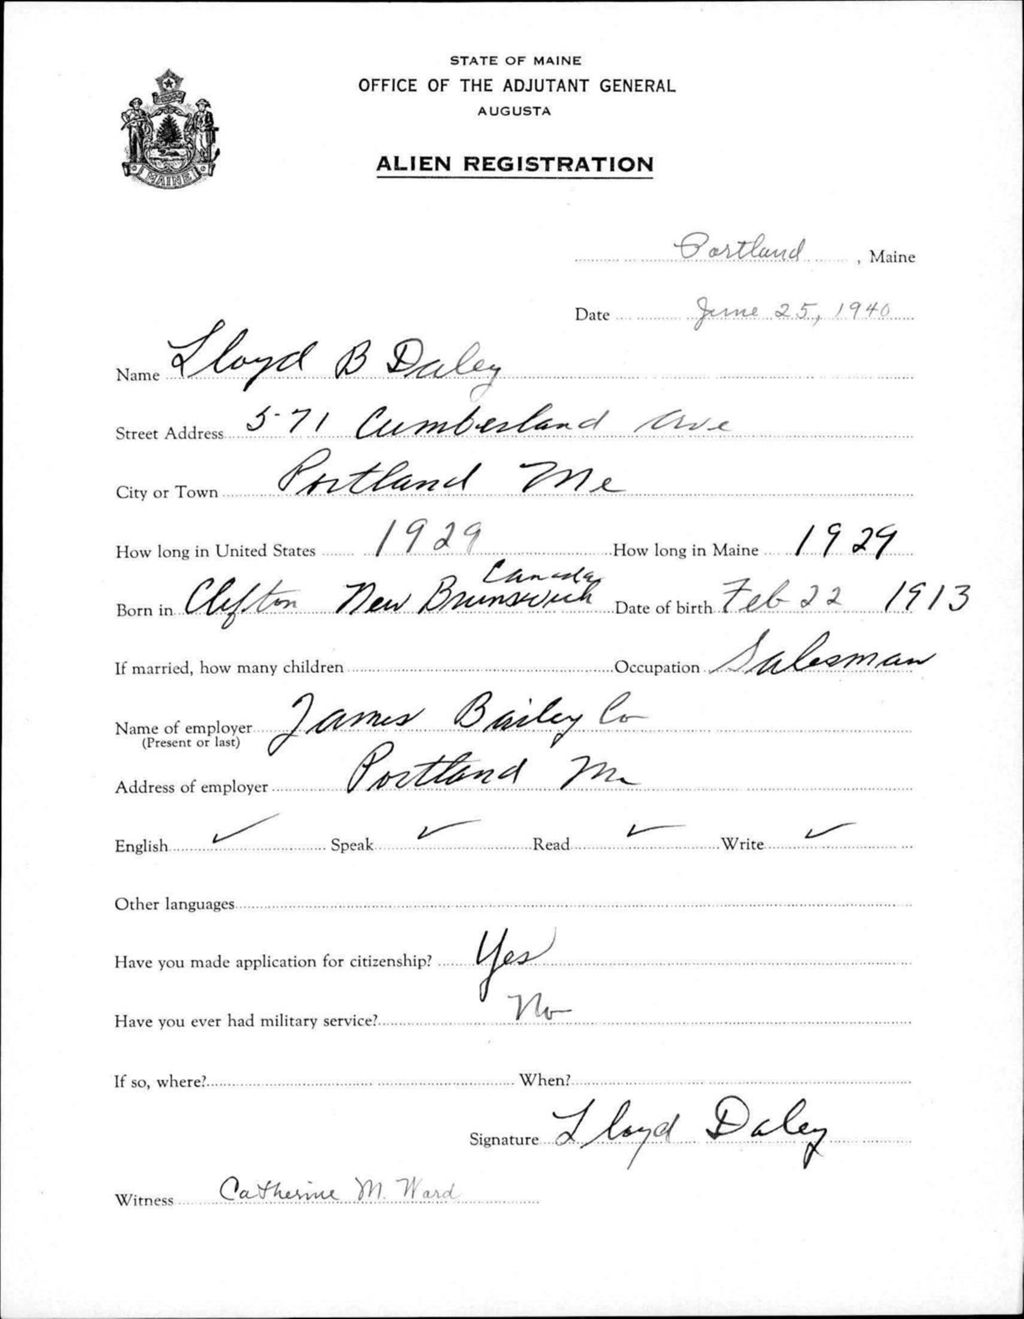 STATE OF MAINE
OFFICE OF THE ADJUTANT GENERAL
AUGUSTA
ALIEN REGISTRATION
MAINE
Portland, Maine
Date June 25, 1940
Name Lloyd B Daley
Street Address 571 Cumberland Ave
City or Town Portland Me
How long in United States 1929 How long in Maine 1929
Canada
Born in Clifton New Brunswick Date of birth Feb 22 1913
If married, how many children Occupation Salesman
Name of employer James Bailey Co
(Present or last)
Address of employer Portland Me
English ✓ Speak ✓ Read ✓ Write ✓
Other languages
Have you made application for citizenship? Yes
Have you ever had military service? No
If so, where? When?
Signature Lloyd Daley
Witness Catherine M. Ward